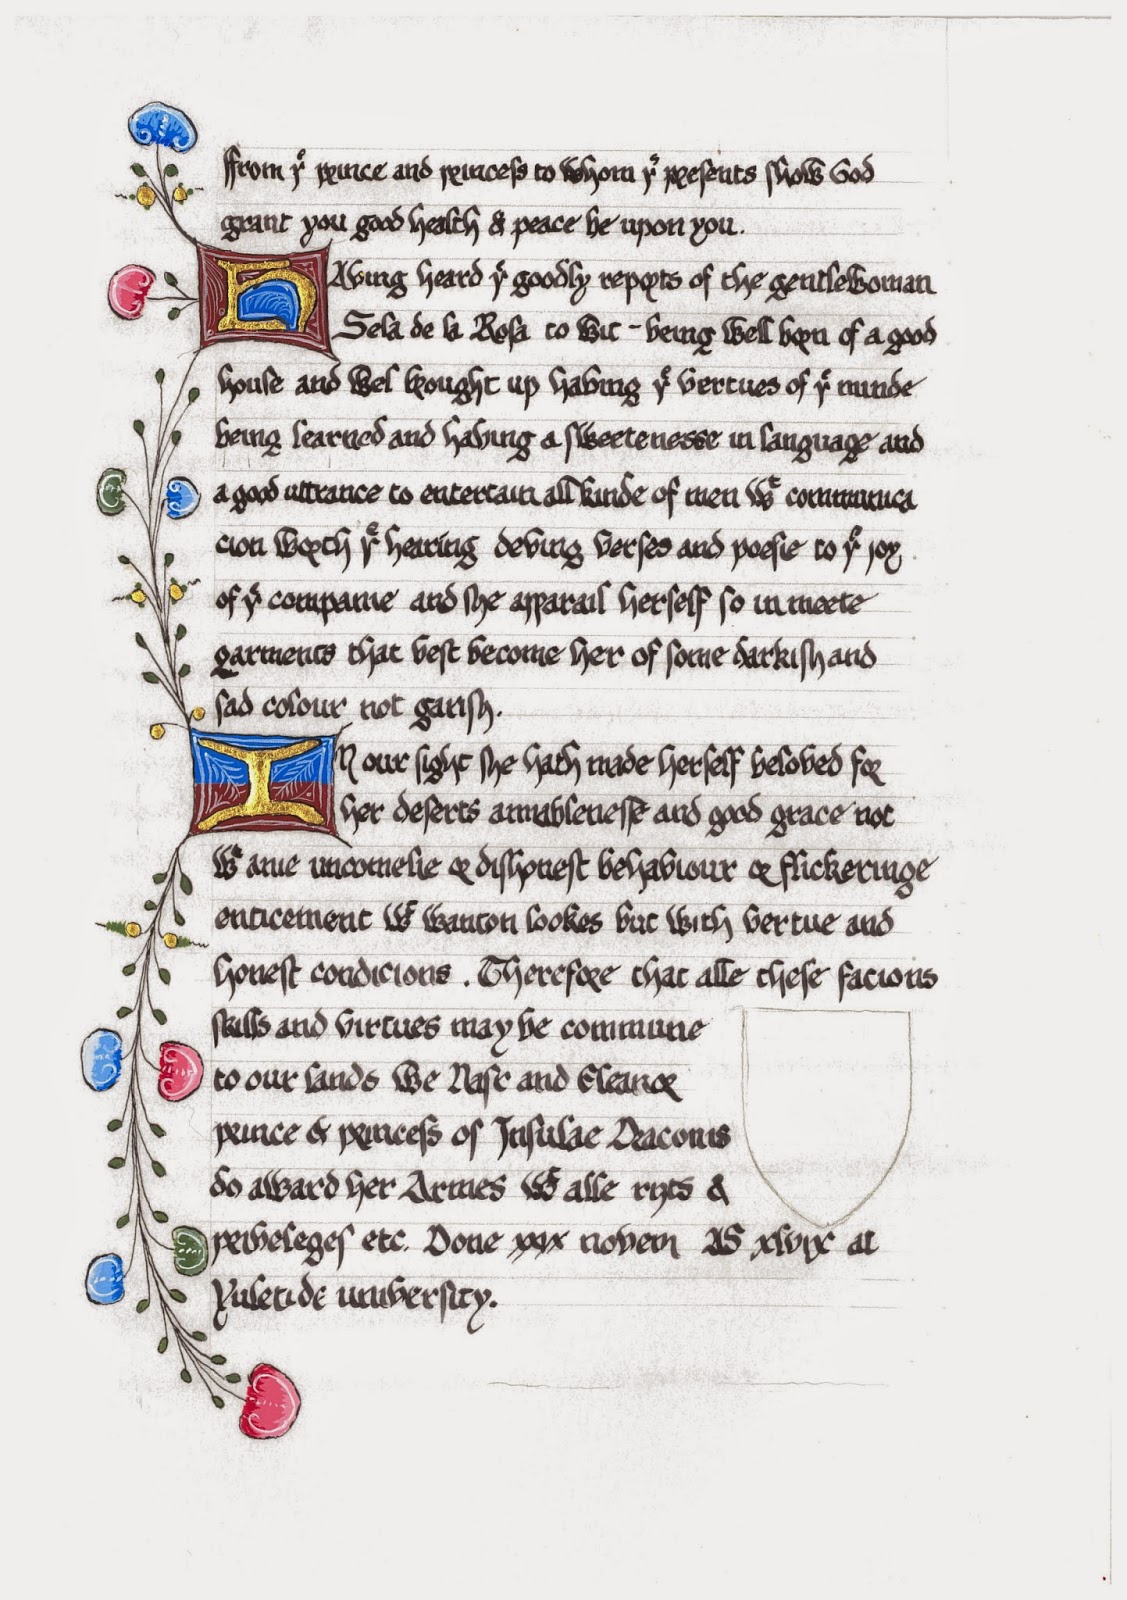 ffrom yͤ prince and princess to whom yͤ presents show God
grant you good health & peace be upon you.
Having heard yͤ goodly reports of the gentlewoman
Sela de la Rosa to wit - being well born of a good
house and wel brought up having yͤ vertues of yͤ minde
being learned and having a sweetenesse in language and
a good uttrance to entertain all kinde of men wͭ communica
cion worth yͤ hearing deving verses and poesie to yͤ joy
of yͤ companie and she apparail herself so in meete
garments that best become her of some darkish and
sad colour not garish.
IN our sight she hath made herself beloved for
her deserts amiableness and good grace not
wͭ anie uncomelie or dishonest behaviour or flickeringe
enticement wͭ wanton lookes but with vertue and
honest condicions. Therefore that alle these facions
skills and virtues may be commune
to our lands We Nasr and Eleanor
prince & princess of Insulae Draconis
do award her Armes wͭ alle ryts &
priveleges etc. Done xxix novem AS xlvix at
Yuletide university.